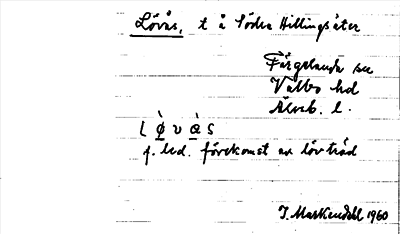 Lövås, t å Södra Hillingsäter
Färgelanda sn
Valbo hd
Älvsb. l.
l ø̀ v à s
f. led. förekomst av lövträd
1960